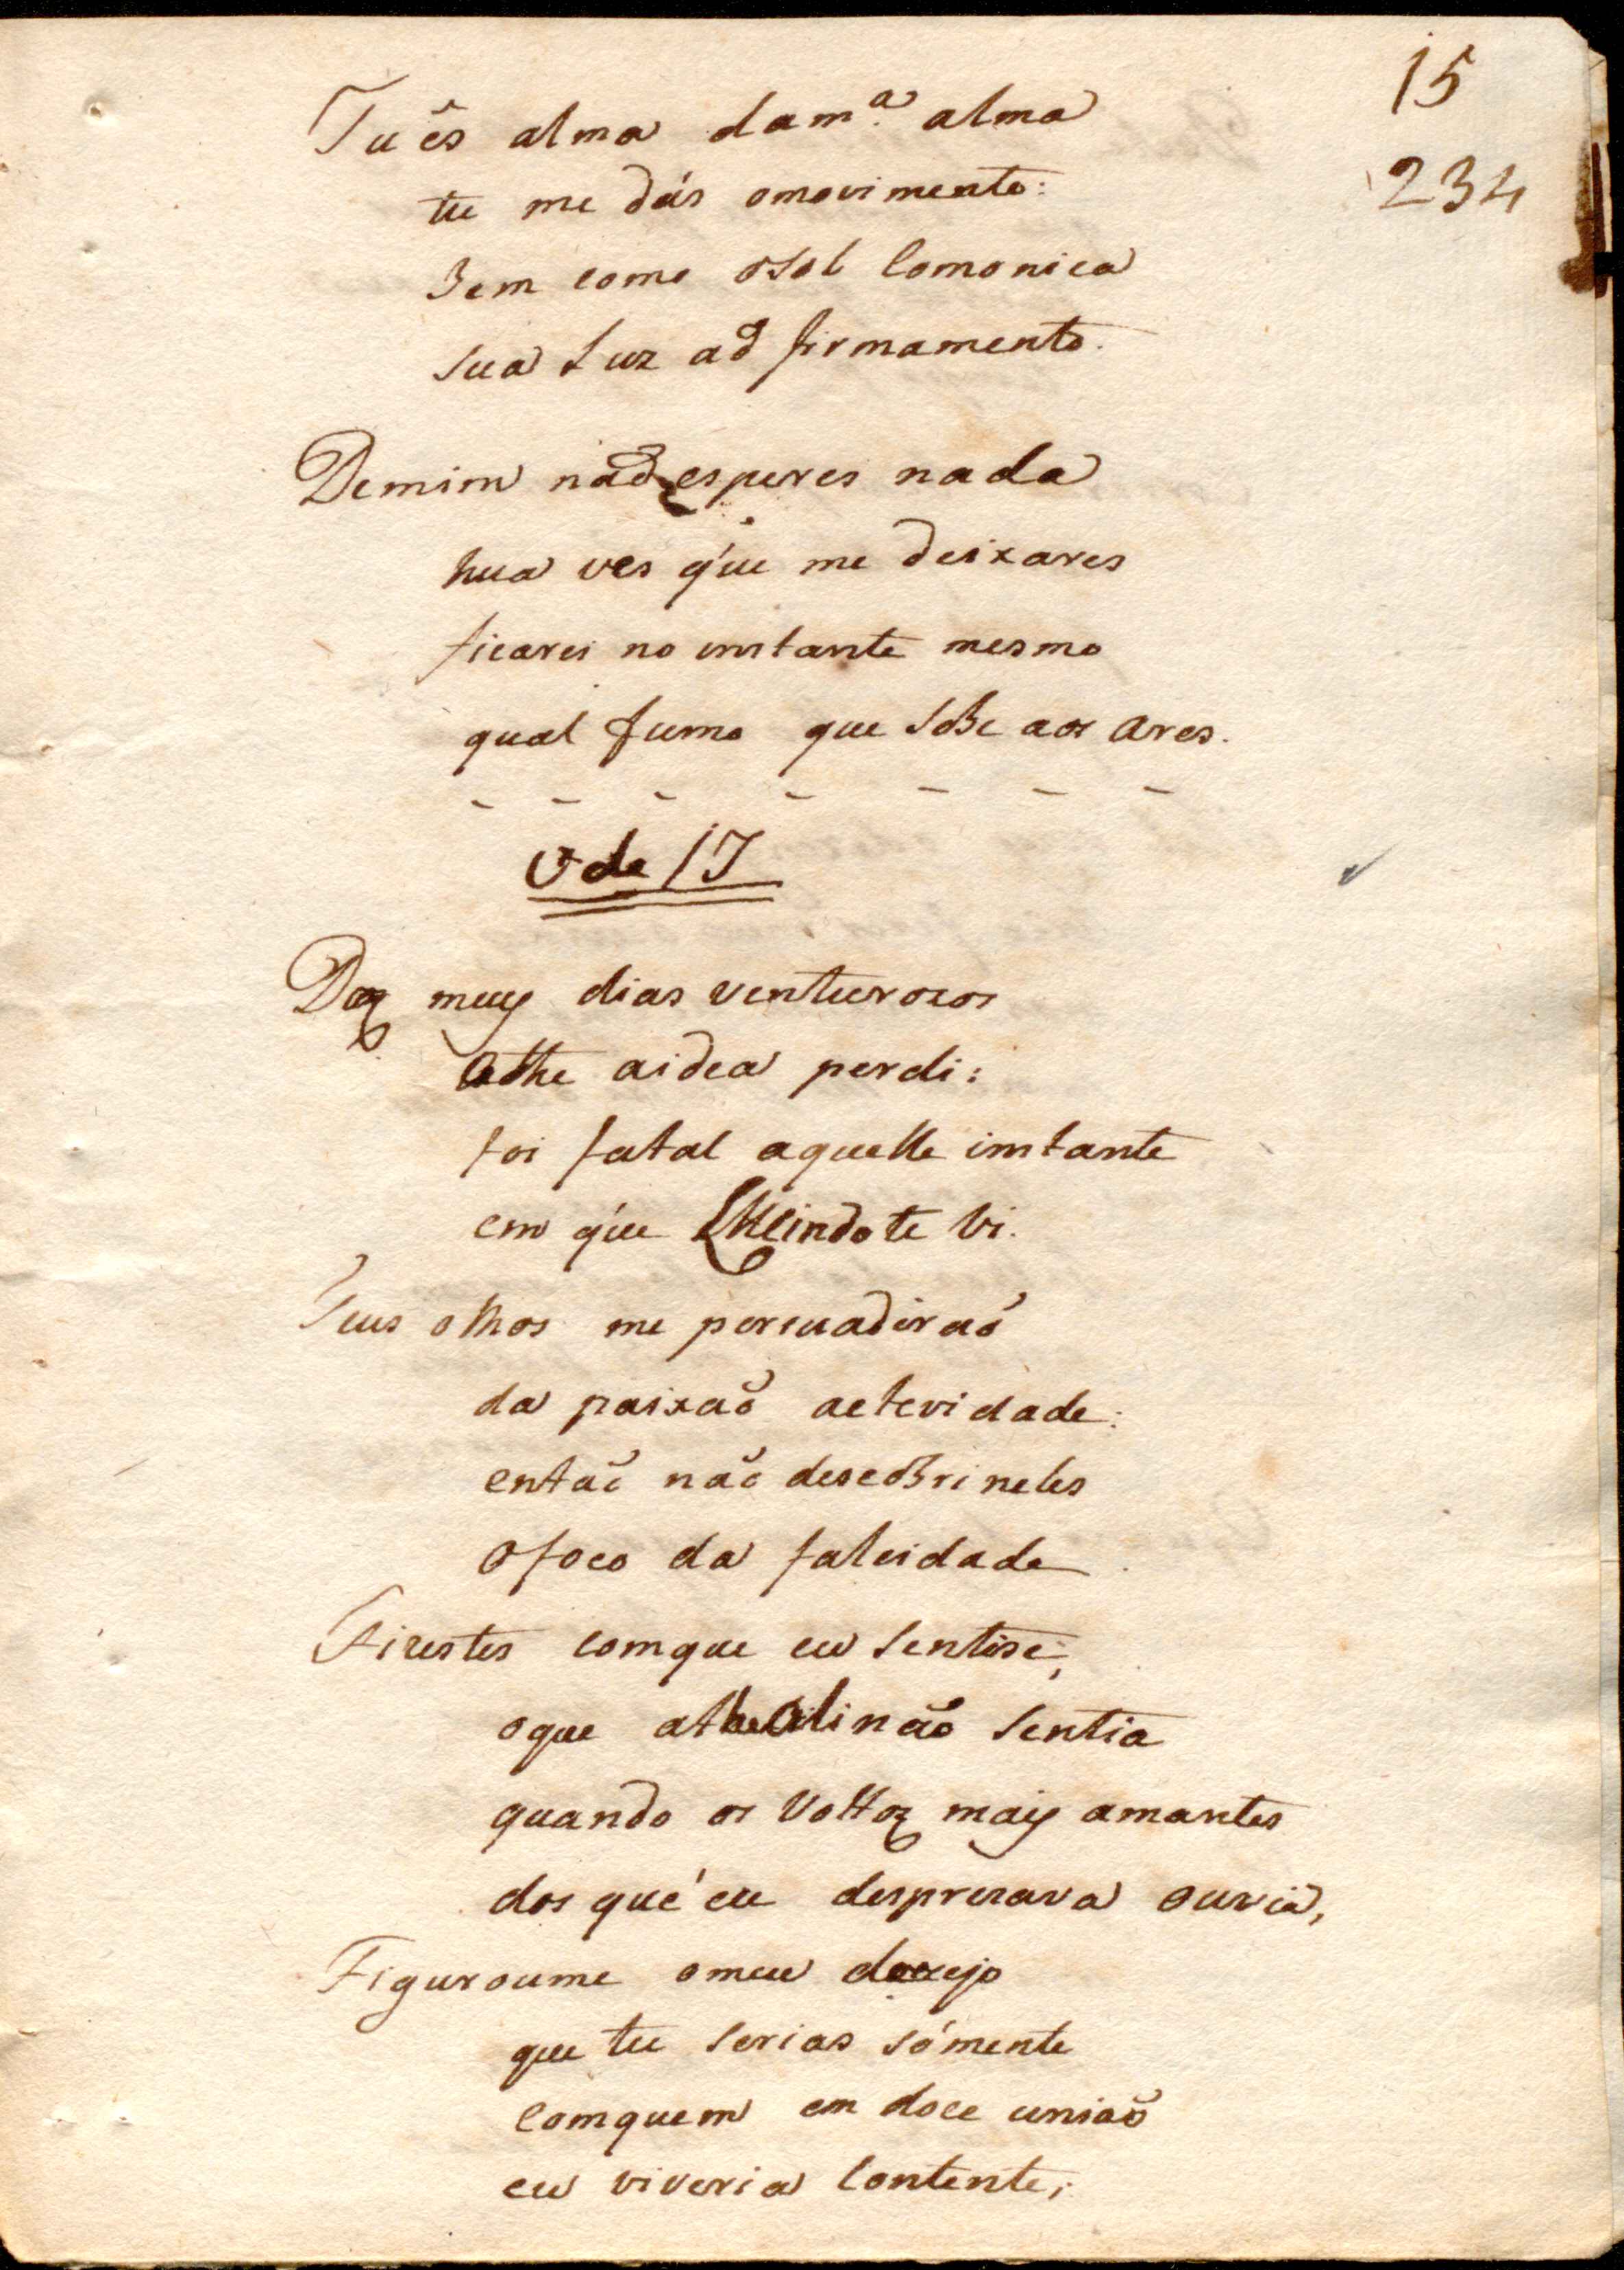 15
234
Tu és alma da m.ª alma
tu me dás omovimento:
Bem como osol Comonica
sua Luz aõ firmamento.
Demim naõ esperes nada
hua ves q'ue me deixares
ficarei no instante mesmo
qual fumo que soBe aos ares.
- - - - - - -
Ode 17
Dos meus dias venturosos
Athe aidea perdi:
foi fatal aquelle instante
em q'ue Elleindo te Vi.
Teus olhos me persuadiraõ
da paixaõ actevidade:
entaõ naõ descoBri neles
ofoco da falcidade
Fizestes comque eu sentise;
oque athe Ali naõ sentia
quando os Vottos mais amantes
dos que' eu despresava ouvia,
Figuroume omeu dezejo
que tu serias sómente
Comquem em doce uniaõ
eu viveria Contente;